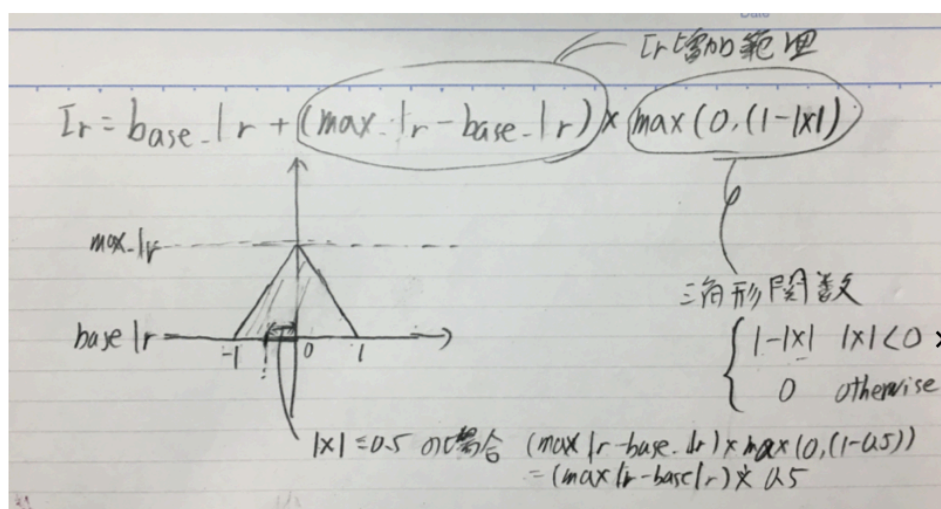 Date
lr 増加の範囲
lr = base_lr + (max_lr - base_lr) × max(0,(1-|x|)
max_lr
三角形関数
base lr -1 0 1
1-|x| |x|<0
0 otherwise
|x|=0.5 の場合 (max lr - base_lr) × max(0,(1-0.5))
= (max lr - base lr) × 0.5